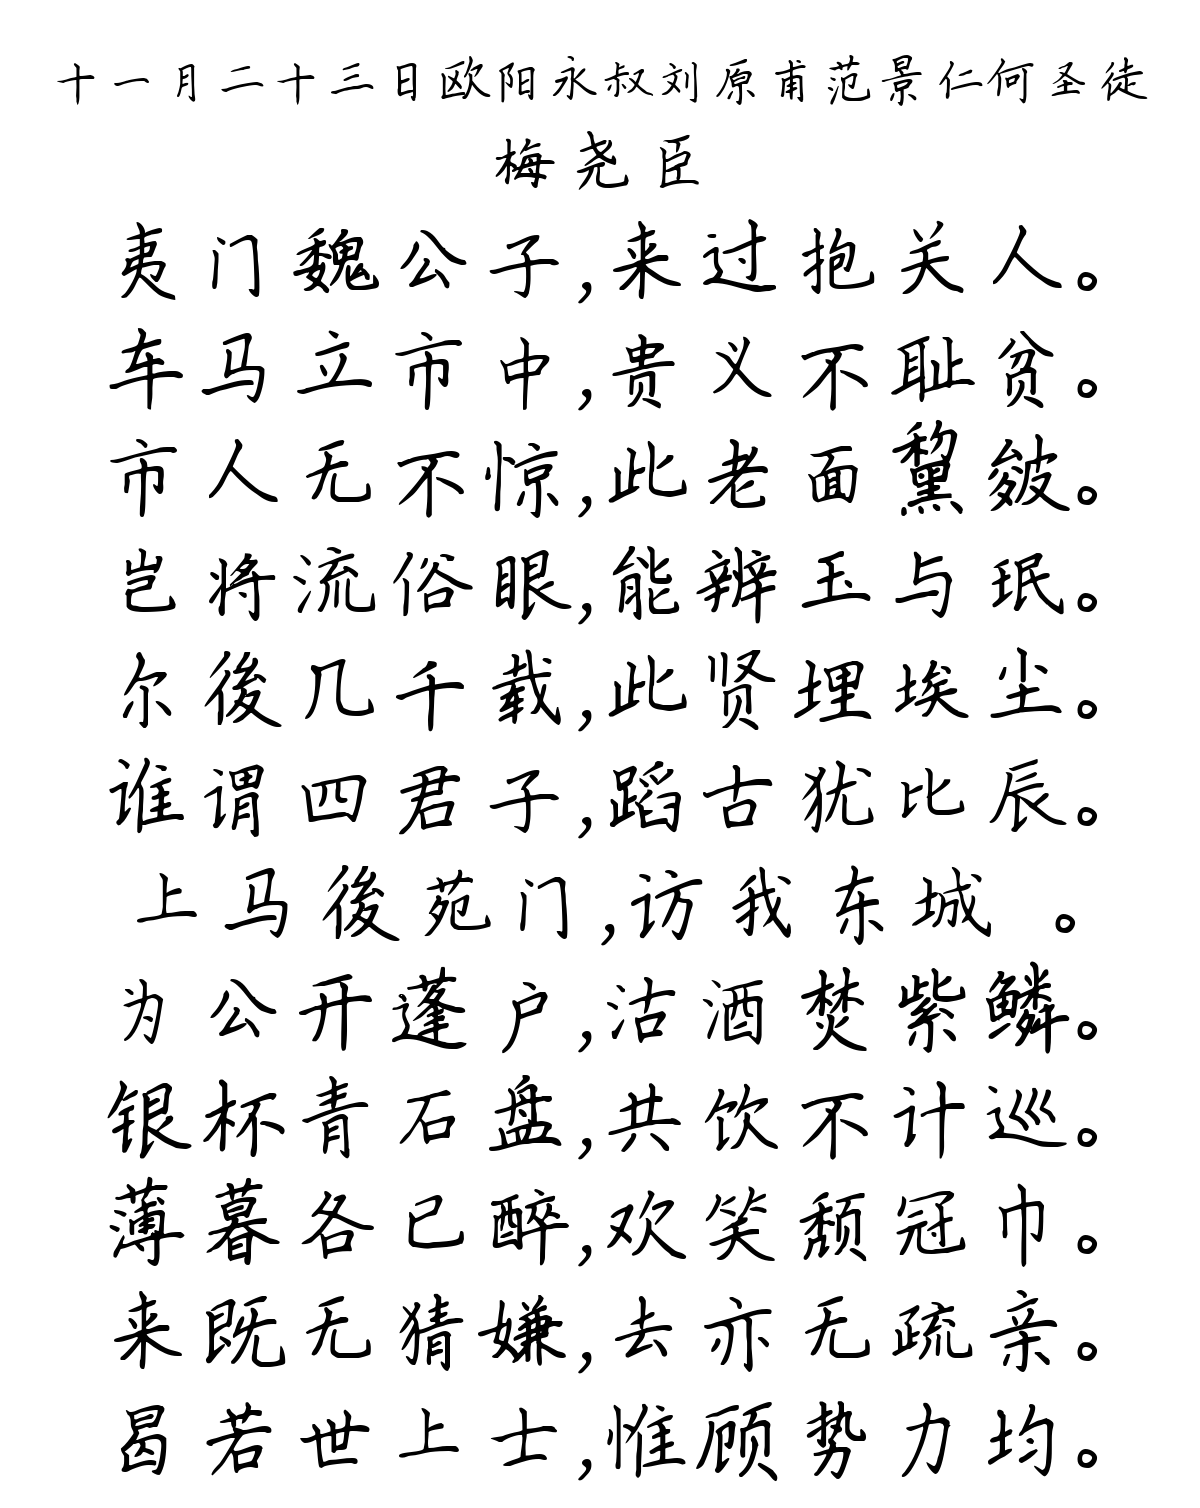 十一月二十三日欧阳永叔刘原甫范景仁何圣徒
梅尧臣
夷门魏公子,来过抱关人。
车马立市中,贵义不耻贫。
市人无不惊,此老面黧皴。
岂将流俗眼,能辨玉与珉。
尔後几千载,此贤埋埃尘。
谁谓四君子,蹈古犹比辰。
上马後苑门,访我东城 。
为公开蓬户,沽酒焚紫鳞。
银杯青石盘,共饮不计巡。
薄暮各已醉,欢笑颓冠巾。
来既无猜嫌,去亦无疏亲。
曷若世上士,惟顾势力均。